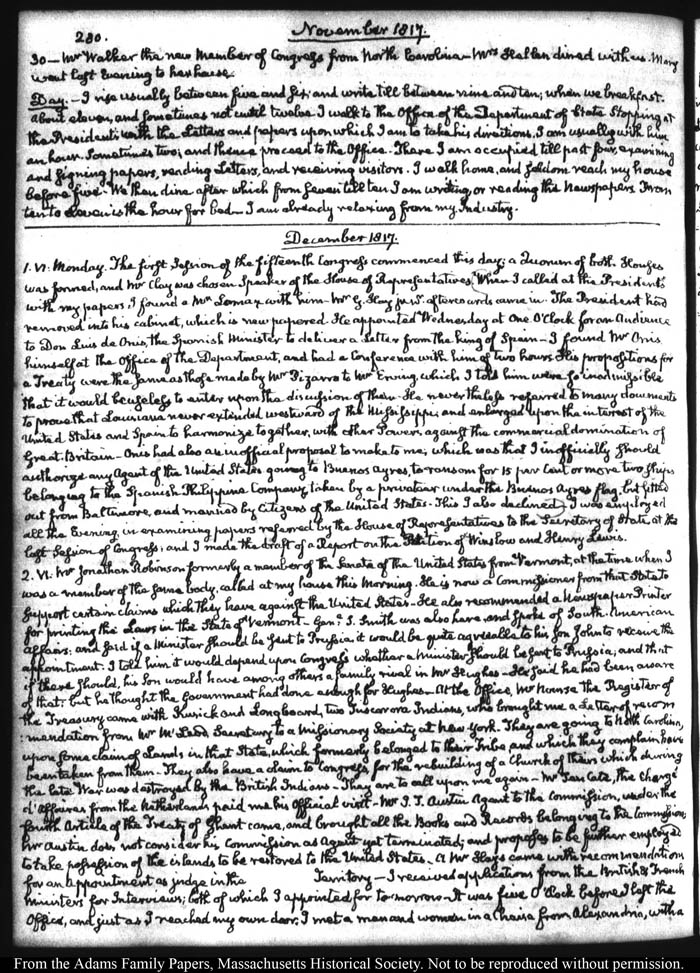 280.
November 1817.
30 — Mr Walker the new Member of Congress from North Carolina — Mrs Hellen dined with us. Mary
went last Evening to her house.
Day. — I rise usually between five and six; and write till between nine and ten; when we breakfast.
About eleven, and sometimes not until twelve I walk to the Office of the Department of State Stopping at
the President's with the Letters and papers upon which I am to take his directions. I am usually with him
an hour Sometimes two; and thence proceed to the Office. There I am occupied till past four, examining
and signing papers, reading Letters, and receiving visitors. I walk home, and seldom reach my house
before five. We then dine after which from seven till ten I am writing, or reading the Newspapers. From
ten to eleven is the hour for bed — I am already relaxing from my Industry.
December 1817.
1. VI. Monday. The first Session of the fifteenth Congress commenced this day; a Quorum of both Houses
was formed, and Mr Clay was chosen Speaker of the House of Representatives. When I called at the President's
with my papers, I found a Mr Lomax with him — Mr G. Hay afterwards came in. The President had
removed into his cabinet, which is new papered. He appointed Wednesday at One O'Clock for an Audience
to Don Luis de Onis, the Spanish Minister to deliver a Letter from the king of Spain — I found Mr Onis
himself at the Office of the Department, and had a Conference with him of two hours. His propositions for
a Treaty were the same as those made by Mr Pizarro to Mr Erving, which I told him were so inadmissible
that it would be useless to enter upon the discussion of them. He nevertheless referred to many documents
to prove that Louisiana never extended westward of the Mississippi; and enlarged upon the interest of the
United States and Spain to harmonize together, with other Powers against the commercial domination of
Great-Britain — Onis had also an inofficial proposal to make to me, which was that I inofficially should
authorize any Agent of the United States going to Buenos Ayres, to ransom for 15 per Cent or more two Ships
belonging to the Spanish Philippine Company, taken by a privateer under the Buenos Ayres flag, but fitted
out from Baltimore, and manned by Citizens of the United States. This I also declined. I was employed
all the Evening in examining papers referred by the House of Representatives to the Secretary of State, at the
last Session of Congress; and I made the draft of a Report on the Petition of Winslow and Henry Lewis.
2. VI. Mr Jonathan Robinson formerly a member of the Senate of the United States from Vermont, at the time when I
was a member of the same body, called at my house this Morning. He is now a Commissioner from that State to
support certain claims which they have against the United States — He also recommended a Newspaper Printer
for printing the Laws in the State of Vermont — Genl. S. Smith was also here, and spoke of South-American
affairs; and said if a Minister should be sent to Prussia, it would be quite agreeable to his Son John to receive the
appointment. I told him it would depend upon Congress whether a Minister should be sent to Prussia, and that
if there should, his Son would have among others a family rival in Mr Hughes — He said he had been aware
of that: but he thought the Government had done enough for Hughes — At the Office, Mr Nourse the Register of
the Treasury came with Kusick and Longboard, two Tuscarora Indians, who brought me a Letter of recom
:mendation from Mr McLeod, Secretary to a Missionary Society at New-York. They are going to North Carolina,
upon some claim of Lands in that State, which formerly belonged to their Tribe and which they complain have
been taken from them — They also have a claim to Congress for the rebuilding of a Church of theirs which during
the late War was destroyed by the British Indians — They are to call upon me again — Mr Ten Cate, the Chargé
d'Affaires from the Netherlands paid me his official visit — Mr J. T. Austin Agent to the Commission, under the
fourth Article of the Treaty of Ghent came, and brought all the Books and Records belonging to the Commission;
Mr Austin does not consider his Commission as Agent yet terminated; and proposes to be further employed
to take possession of the islands to be restored to the United States. A Mr Hays came with recommendations
for an appointment as judge in the Territory — I received applications from the British & French
Ministers for Interviews; both of which I appointed for to-morrow — It was five O'Clock before I left the
Office, and just as I reached my own door, I met a man and woman in a Chaise from Alexandria, with a
From the Adams Family Papers, Massachusetts Historical Society. Not to be reproduced without permission.